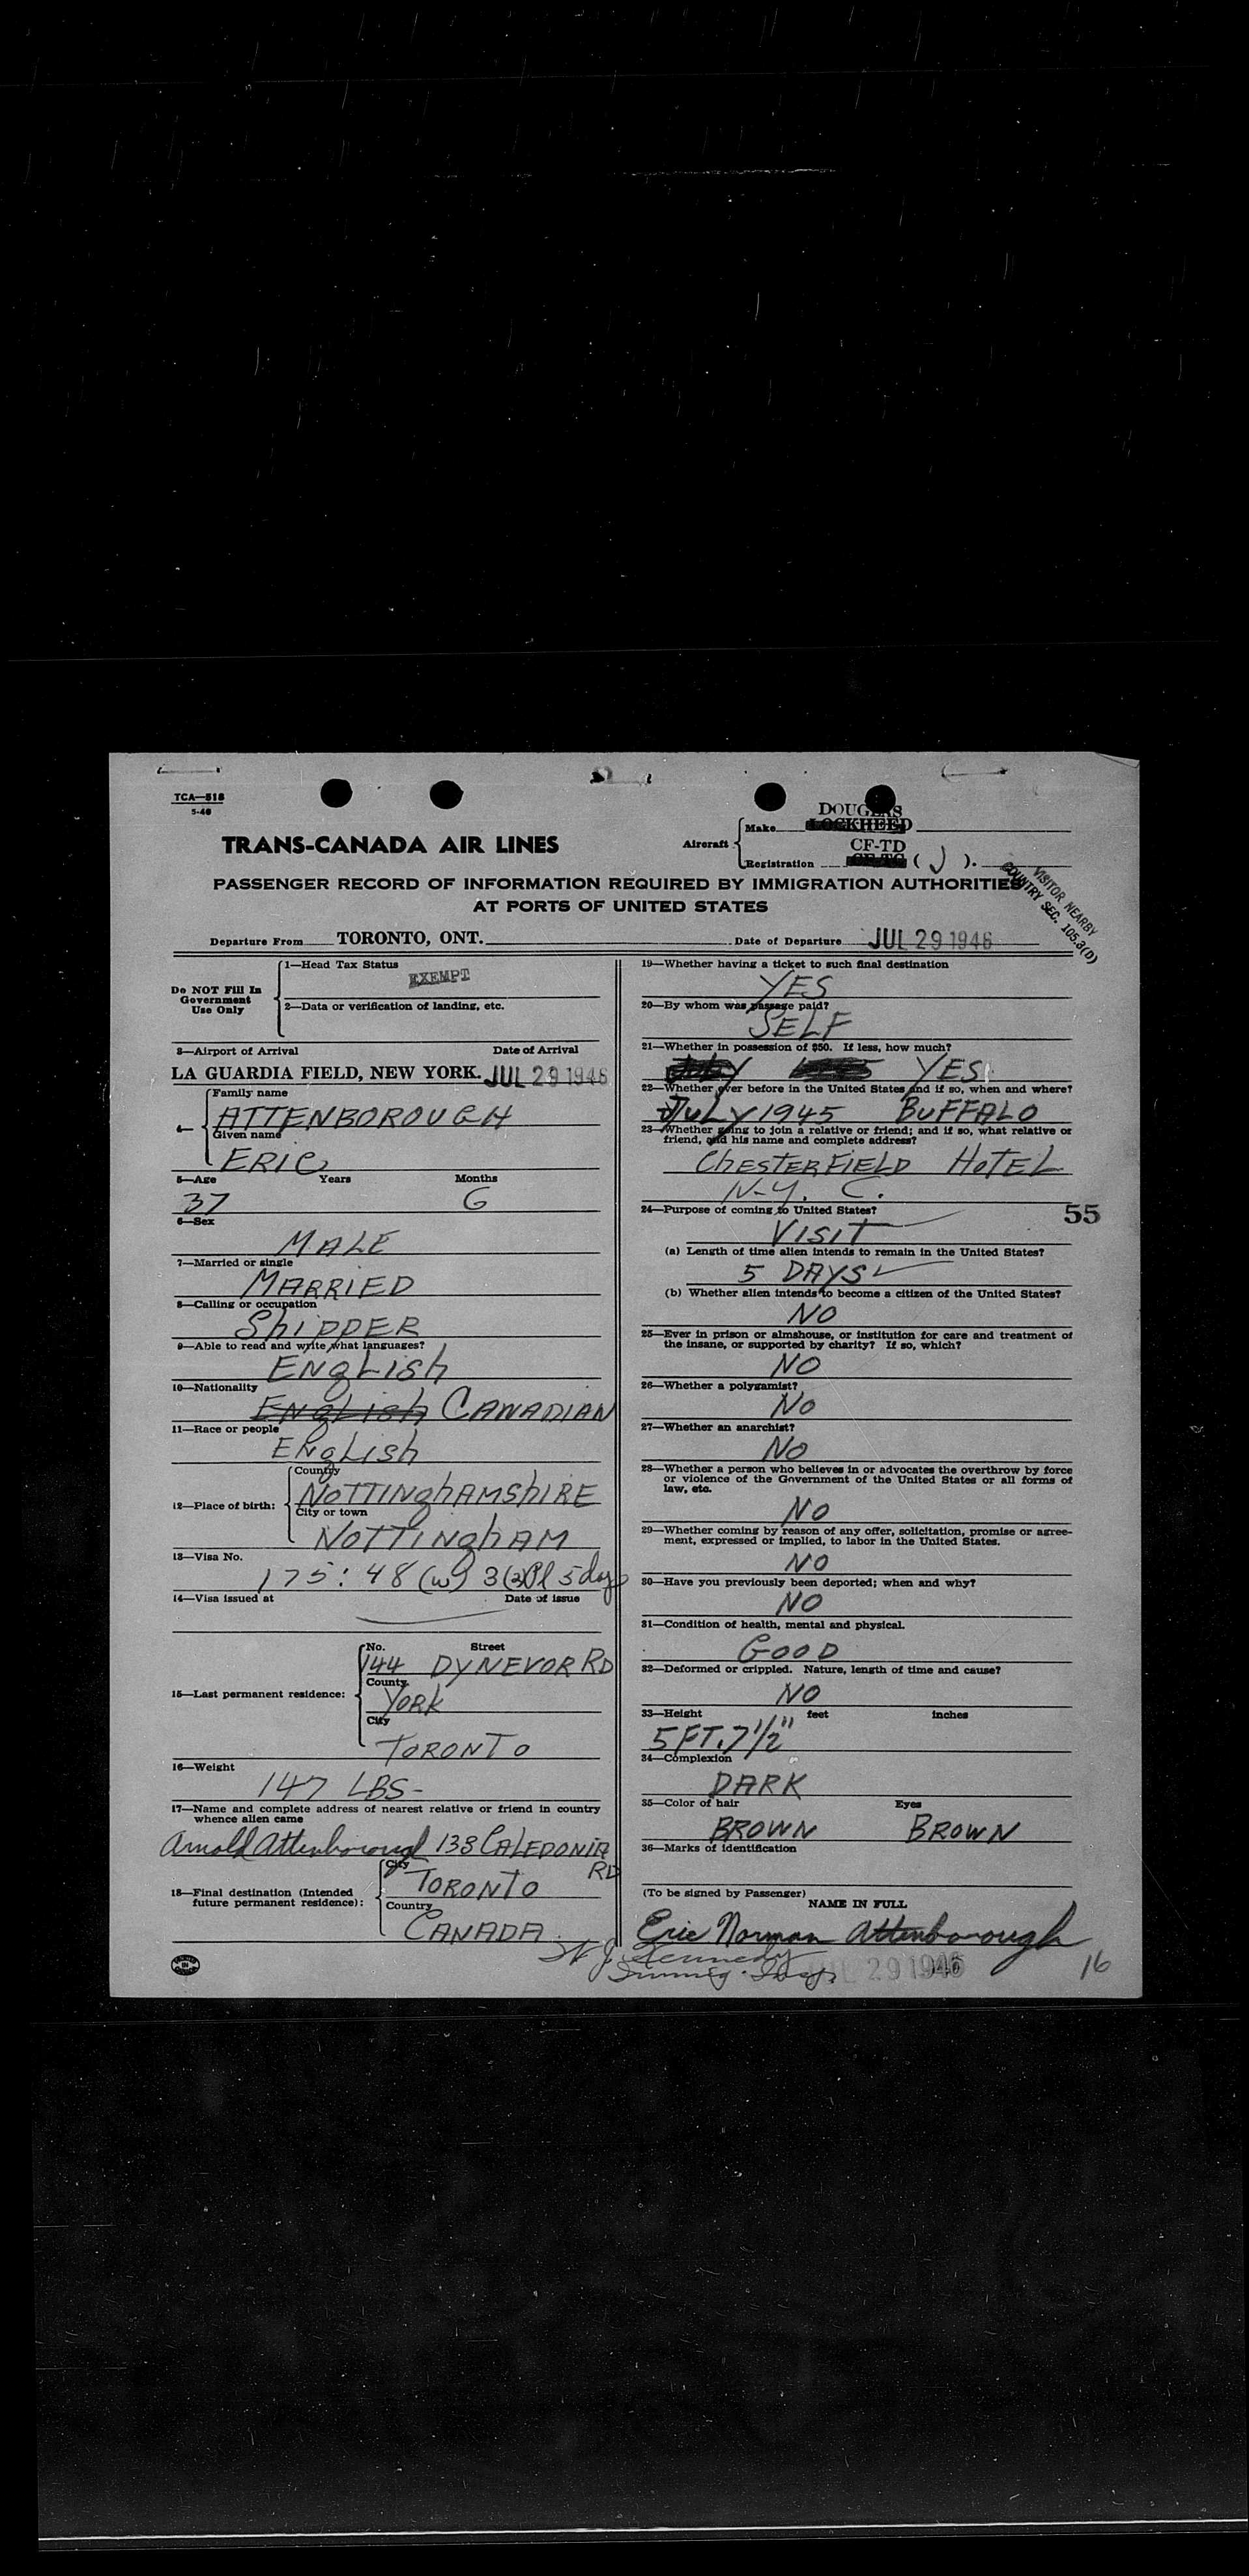 TCA—518
5-46
TRANS-CANADA AIR LINES
Aircraft
Make DOUGLAS
LOCKHEED
Registration CF-TD
CF-TG ( J ).
PASSENGER RECORD OF INFORMATION REQUIRED BY IMMIGRATION AUTHORITIES
AT PORTS OF UNITED STATES
VISITOR NEARBY
COUNTRY SEC. 105.3(D)
Departure From TORONTO, ONT. Date of Departure JUL 29 1946
Do NOT Fill In
Government
Use Only
1—Head Tax Status
EXEMPT
2—Data or verification of landing, etc.
3—Airport of Arrival Date of Arrival
LA GUARDIA FIELD, NEW YORK. JUL 29 1946
4—
Family name
ATTENBOROUGH
Given name
ERIC
5—Age Years Months
37 6
6—Sex
MALE
7—Married or single
MARRIED
8—Calling or occupation
ShIPPER
9—Able to read and write what languages?
ENgLISh
10—Nationality
ENgLISh CANADIAN
11—Race or people
ENgLISh
12—Place of birth:
Country
NOTTINghAMShIRE
City or town
NOTTINghAM
13—Visa No.
175:48 (w) 3(2) Pl 5 days
14—Visa issued at Date of issue
15—Last permanent residence:
No. Street
144 DYNEVOR RD
County
YORK
City
TORONTO
16—Weight
147 LBS-
17—Name and complete address of nearest relative or friend in country
whence alien came
Arnold Attenborough 138 CALEDONIA
RD
18—Final destination (Intended
future permanent residence):
City
TORONTO
Country
CANADA
19—Whether having a ticket to such final destination
YES
20—By whom was passage paid?
SELF
21—Whether in possession of $50. If less, how much?
YES
22—Whether ever before in the United States and if so, when and where?
JULY 1945 BUFFALO
23—Whether going to join a relative or friend; and if so, what relative or
friend, and his name and complete address?
ChESTERFIELD HOTEL
N.Y. C.
24—Purpose of coming to United States?
VISIT
55
(a) Length of time alien intends to remain in the United States?
5 DAYS
(b) Whether alien intends to become a citizen of the United States?
NO
25—Ever in prison or almshouse, or institution for care and treatment of
the insane, or supported by charity? If so, which?
NO
26—Whether a polygamist?
NO
27—Whether an anarchist?
NO
28—Whether a person who believes in or advocates the overthrow by force
or violence of the Government of the United States or all forms of
law, etc.
NO
29—Whether coming by reason of any offer, solicitation, promise or agree-
ment, expressed or implied, to labor in the United States.
NO
30—Have you previously been deported; when and why?
NO
31—Condition of health, mental and physical.
GOOD
32—Deformed or crippled. Nature, length of time and cause?
NO
33—Height feet inches
5 FT. 7 1/2"
34—Complexion
DARK
35—Color of hair Eyes
BROWN BROWN
36—Marks of identification
(To be signed by Passenger)
NAME IN FULL
Eric Norman Attenborough
Kennedy
Immig. Insp. JUL 29 1946
16